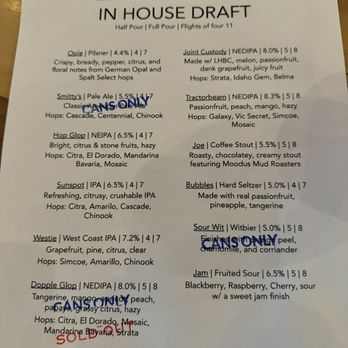 IN HOUSE DRAFT
Half Pour | Full Pour | Flights of four 11
Opie | Pilsner | 4.4% | 4 | 7
Crispy, bready, pepper, citrus, and
floral notes from German Opal and
Spalt Select hops
Smitty's | Pale Ale | 5.5% | 4 | 7
CANS ONLY
Hops: Cascade, Centennial, Chinook
Hop Glop | NEIPA | 6.5% | 4 | 7
Bright, citrus & stone fruits, hazy
Hops: Citra, El Dorado, Mandarina
Bavaria, Mosaic
Sunspot | IPA | 6.5% | 4 | 7
Refreshing, citrusy, crushable IPA
Hops: Citra, Amarillo, Cascade,
Chinook
Westie | West Coast IPA | 7.2% | 4 | 7
Grapefruit, pine, citrus, clear
Hops: Simcoe, Amarillo, Chinook
Dopple Glop | NEDIPA | 8.0% | 5 | 8
Tangerine, mango, peach,
CANS ONLY
papaya, grassy citrus, hazy
Hops: Citra, El Dorado, Mosaic,
Mandarina Bavaria, Strata
SOLD OUT
Joint Custody | NEDIPA | 8.0% | 5 | 8
Made w/ LHBC, melon, passionfruit,
dank grapefruit, juicy fruit
Hops: Strata, Idaho Gem, Belma
Tractorbeam | NEDIPA | 8.3% | 5 | 8
Passionfruit, peach, mango, hazy
Hops: Galaxy, Vic Secret, Simcoe,
Mosaic
Joe | Coffee Stout | 5.5% | 5 | 8
Roasty, chocolatey, creamy stout
featuring Moodus Mud Roasters
Bubbles | Hard Seltzer | 5.0% | 4 | 7
Made with real passionfruit,
pineapple, tangerine
Sour Wit | Witbier | 5.0% | 5 | 8
peel,
CANS ONLY
chamomile, and coriander
Jam | Fruited Sour | 6.5% | 5 | 8
Blackberry, Raspberry, Cherry, sour
w/ a sweet jam finish